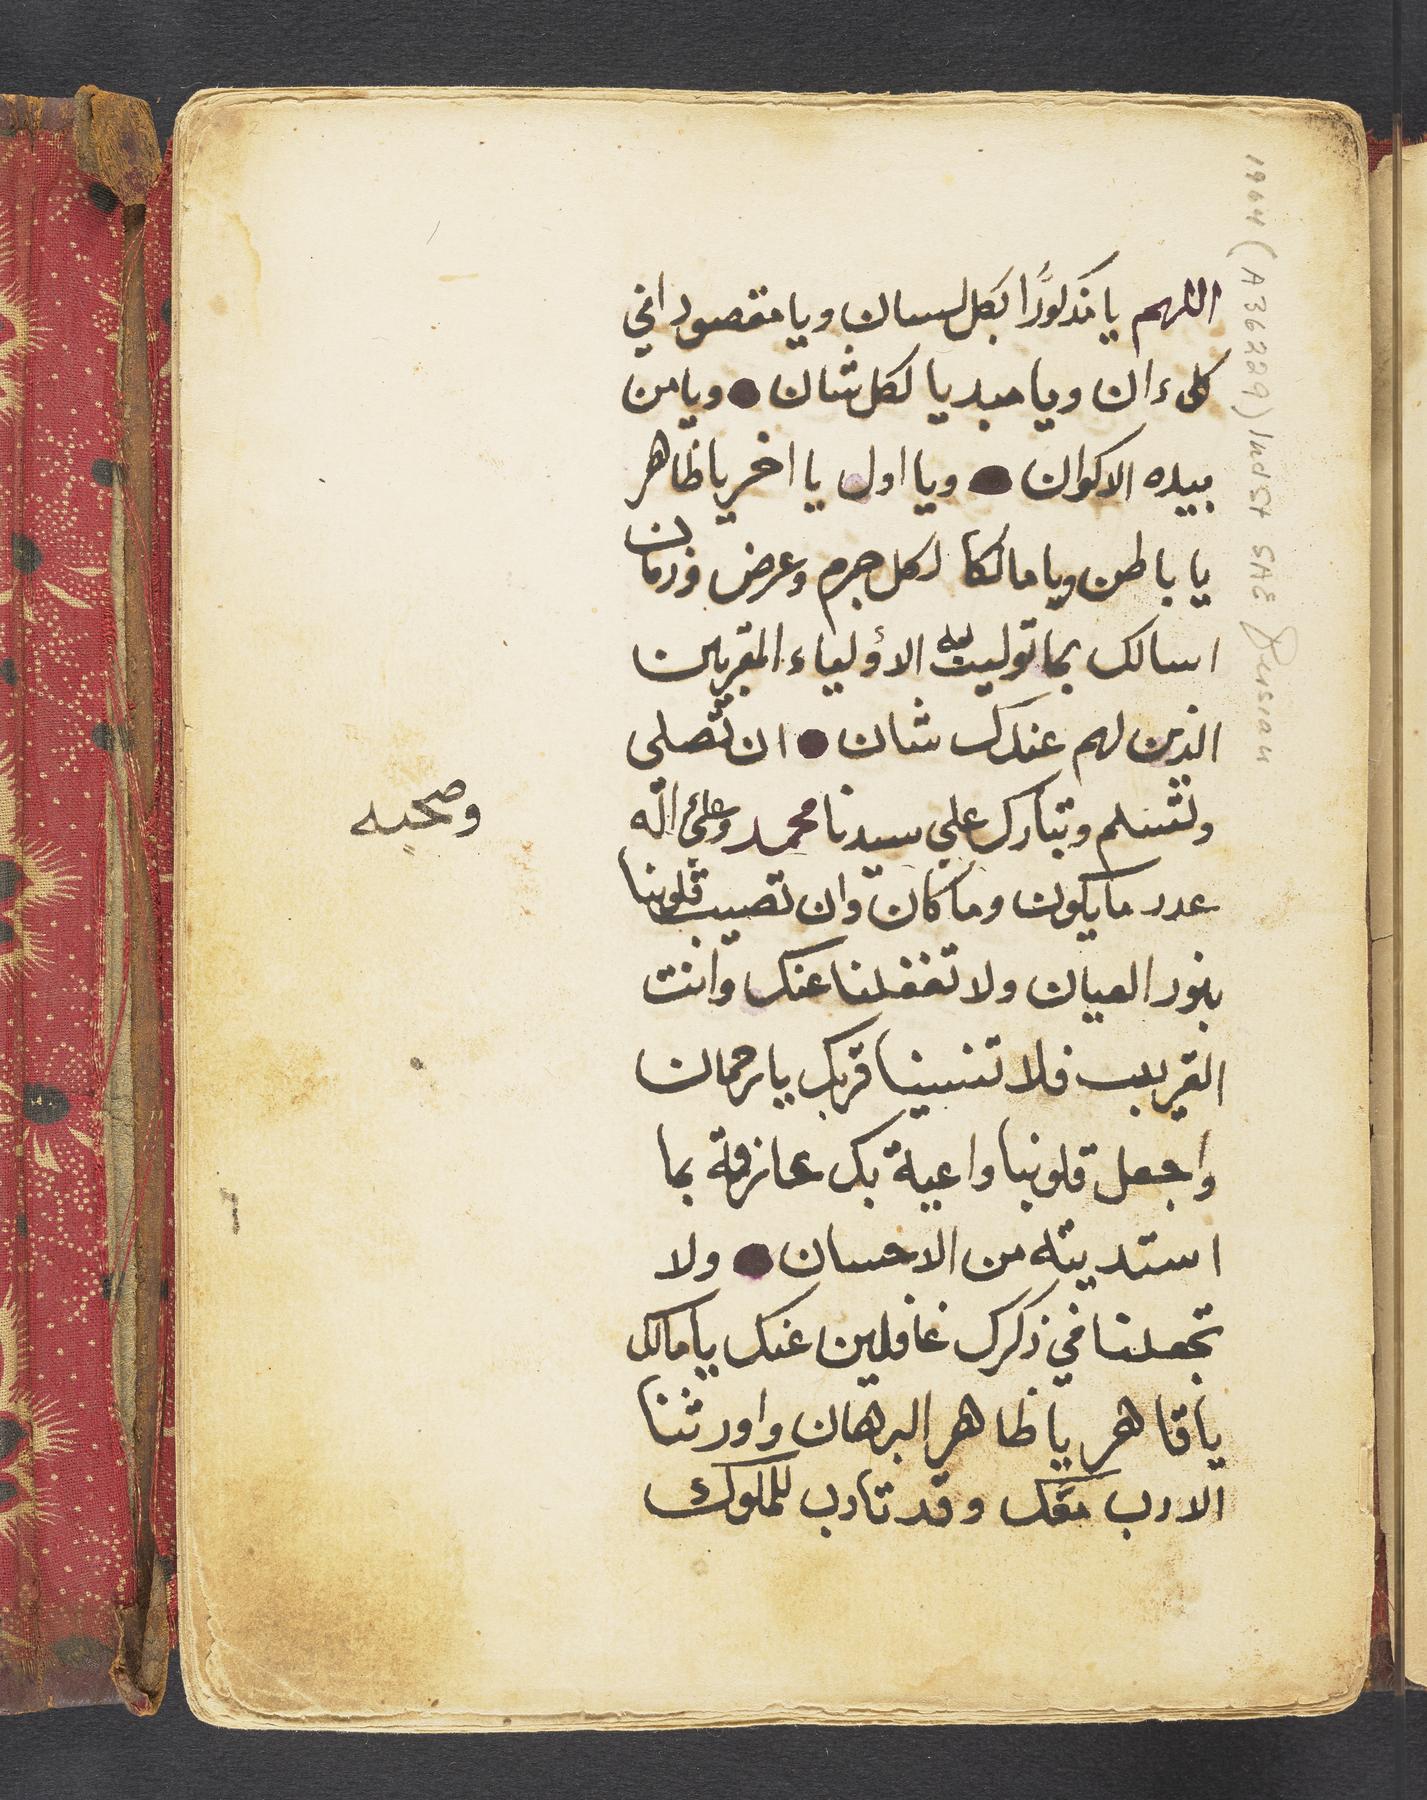 اللهم يا مذكورًا بكل لسان ويا مقصودا في
كل ءان ويا مبديا لكل شان ● ويا من
بيده الاكوان ● ويا اول يا اخر يا ظاهر
يا باطن ويا مالكا لكل جرم وعرض وزمان
اسالك بما توليت به الاولياء المقربين
الذين لهم عندك شان ● ان تصلي
وتسلم وتبارك علي سيدنا محمد وعلى اله
وصحبه
عدد ما يكون وما كان وان تصيب قلوبنا
بنور العيان ولا تغفلنا عنك وانت
القريب فلا تنسينا قربك يا رحمان
واجعل قلوبنا واعية بك عارفة بما
استديته من الاحسان ● ولا
تجعلنا في ذكرك غافلين عنك يا مالك
يا قاهر يا ظاهر البرهان واورثنا
الادب معك وقد تادب للملوك
1964 (A36229) Ind St SAE